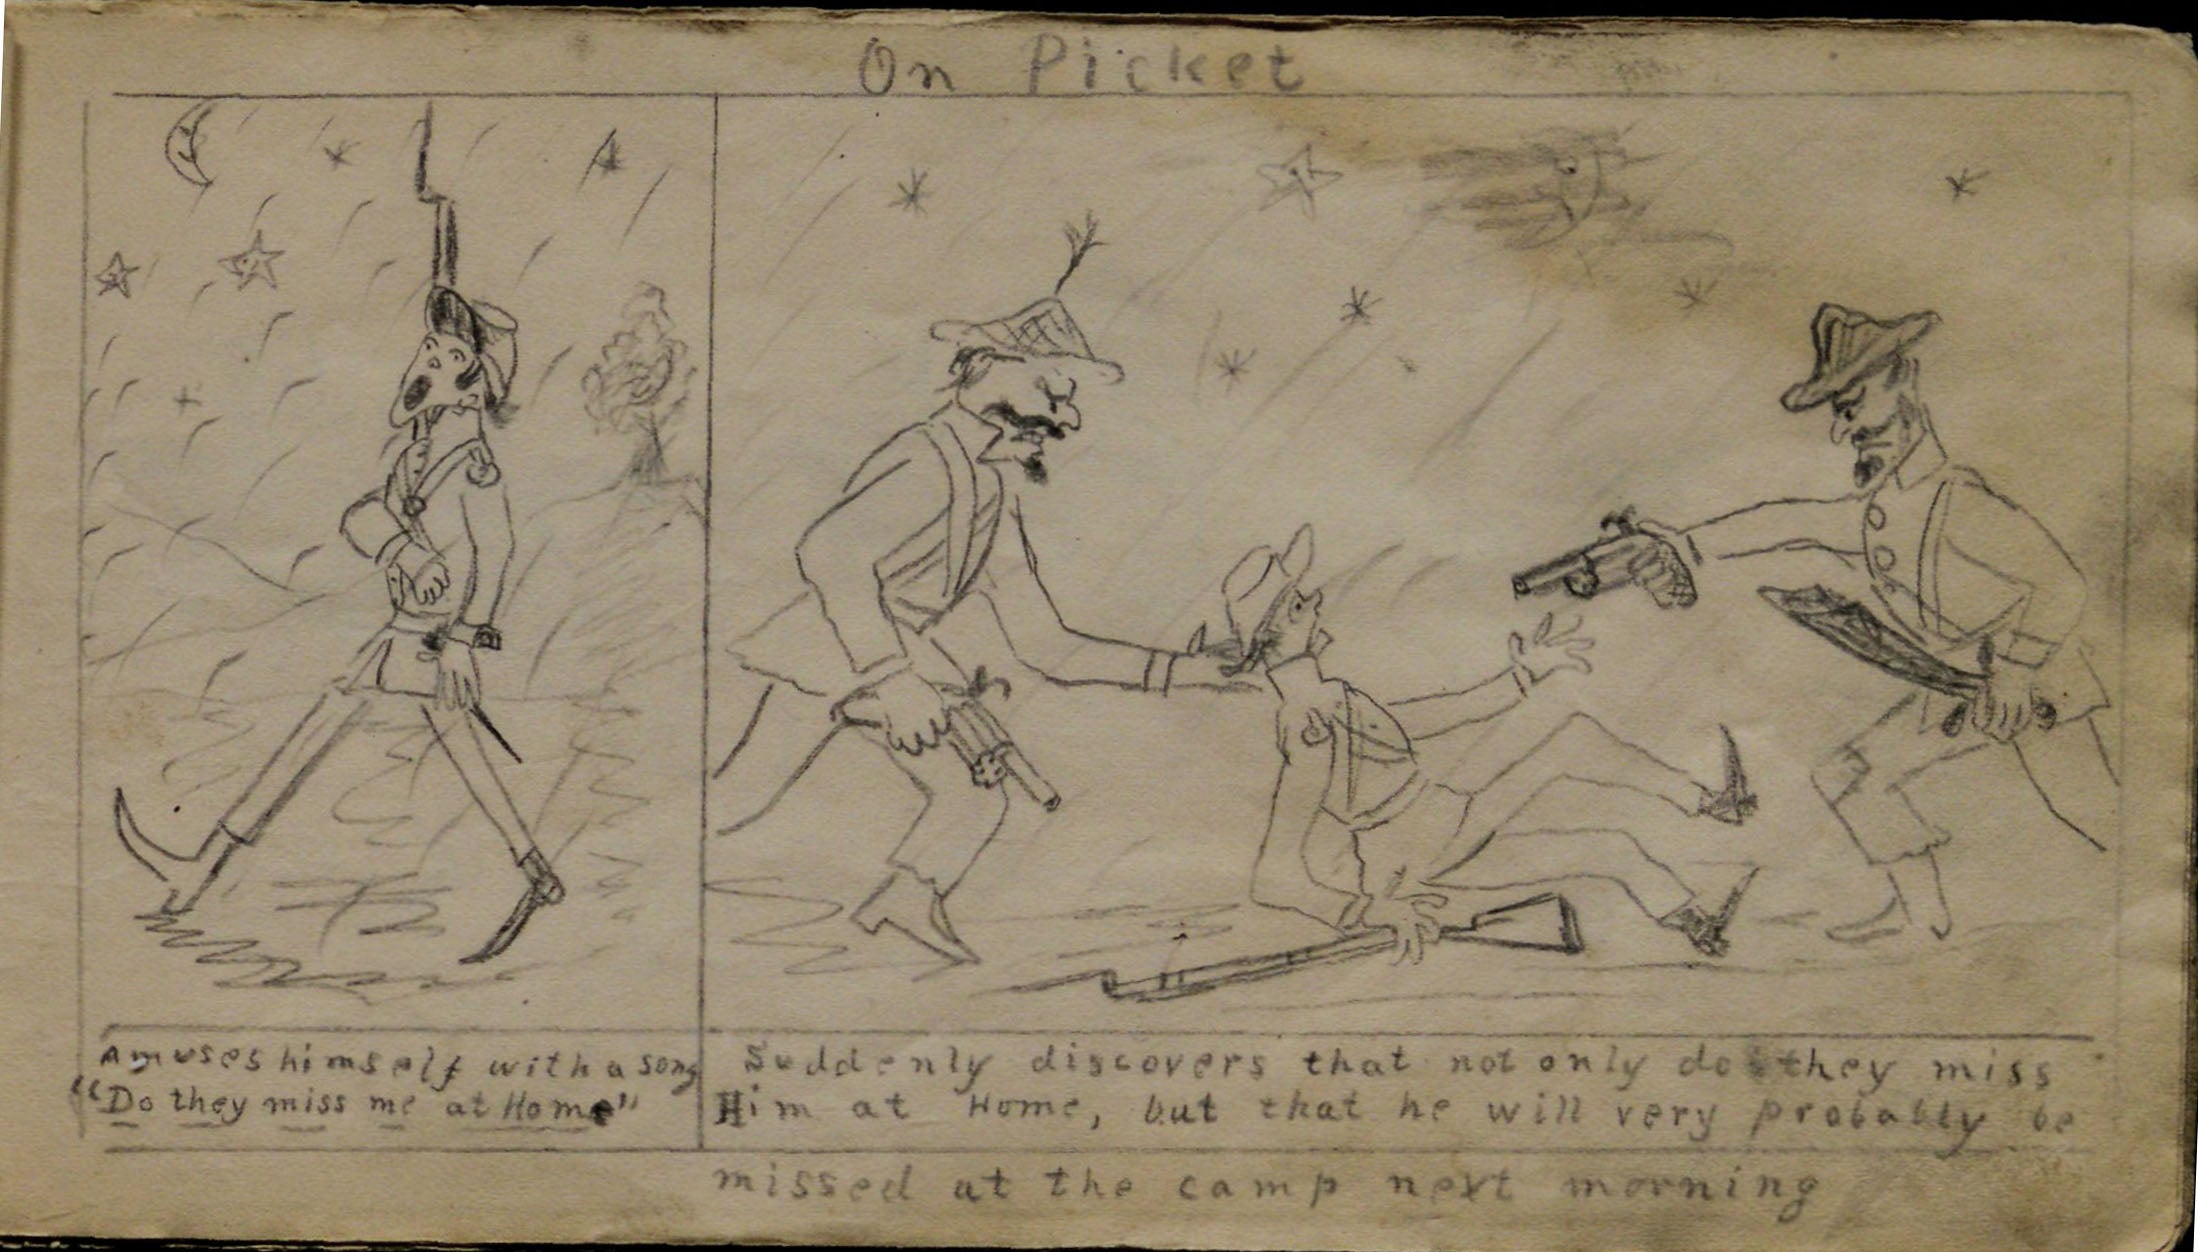 On Picket
Amuses himself with a song
"Do they miss me at Home"
Suddenly discovers that not only do they miss
Him at Home, but that he will very probably be
missed at the camp next morning